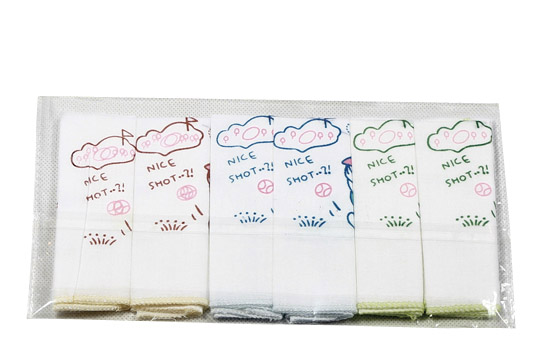 NICE
HOT..?!
NICE
SHOT..?!
NICE
SHOT..?!
NICE
SHOT..?!
NICE
SHOT..?!
NICE
SHOT..?!